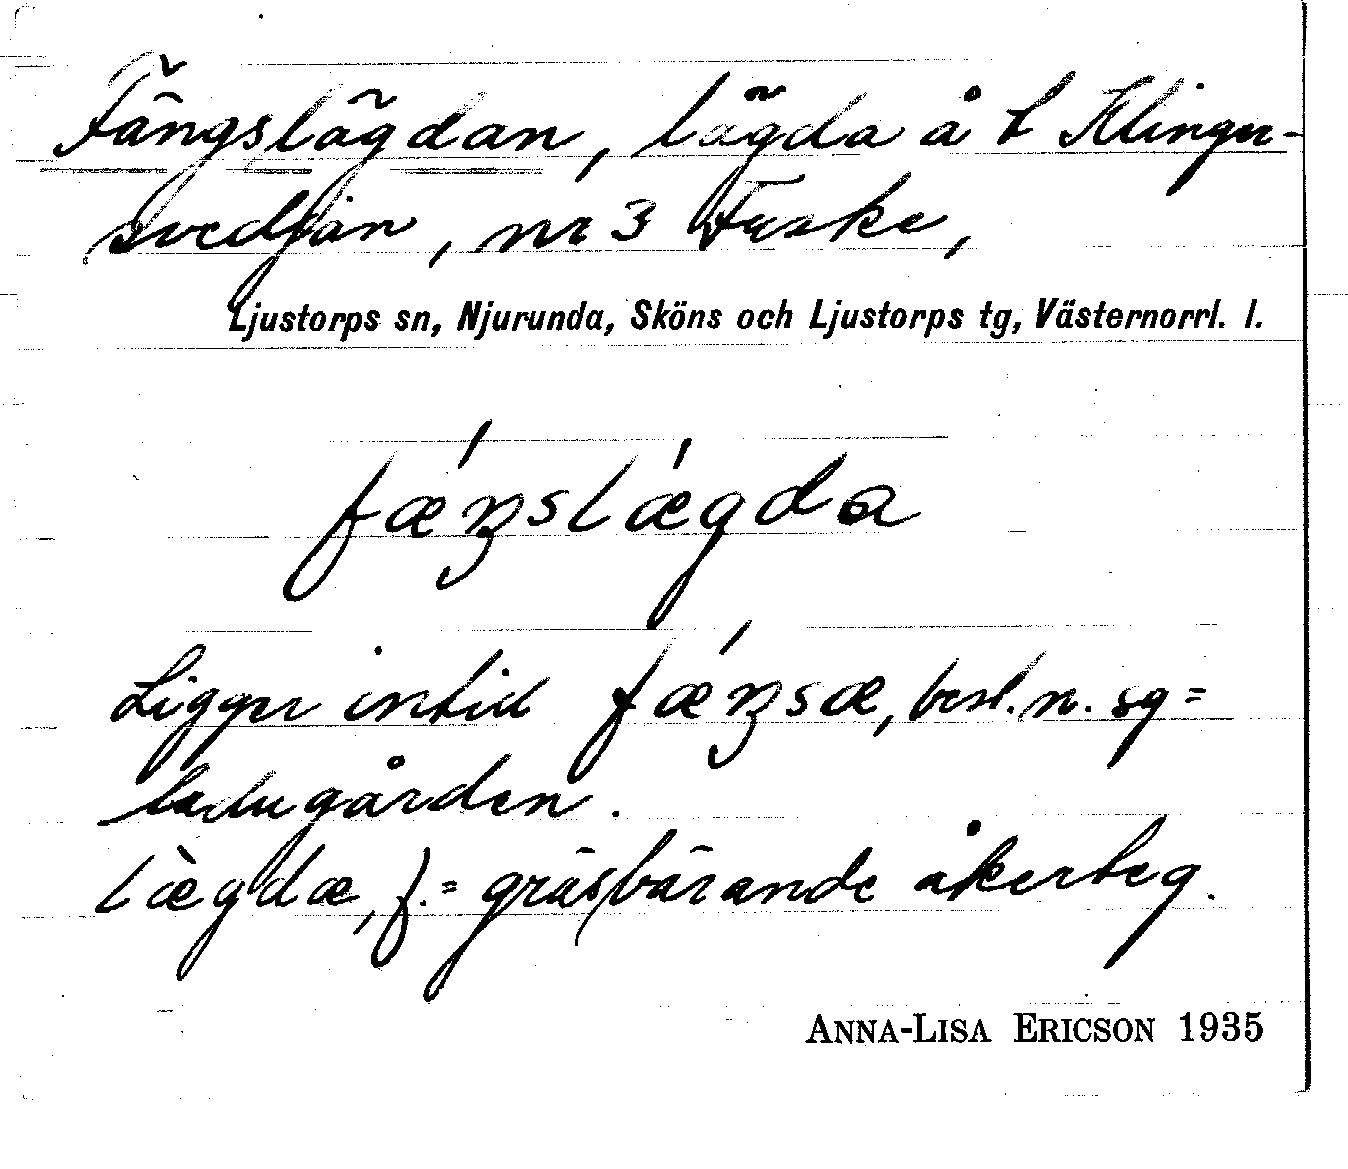 Fängslägdan, lägda å t Klinger-
svedjan, nr 3 Fuske,
Ljustorps sn, Njurunda, Sköns och Ljustorps tg, Västernorrl. l.
fǽŋslǽgda
Ligger intill fǽŋsæ, best. n. sg =
ladugården.
lægdæ, f. = gräsbärande åkerteg.
ANNA-LISA ERICSON 1935